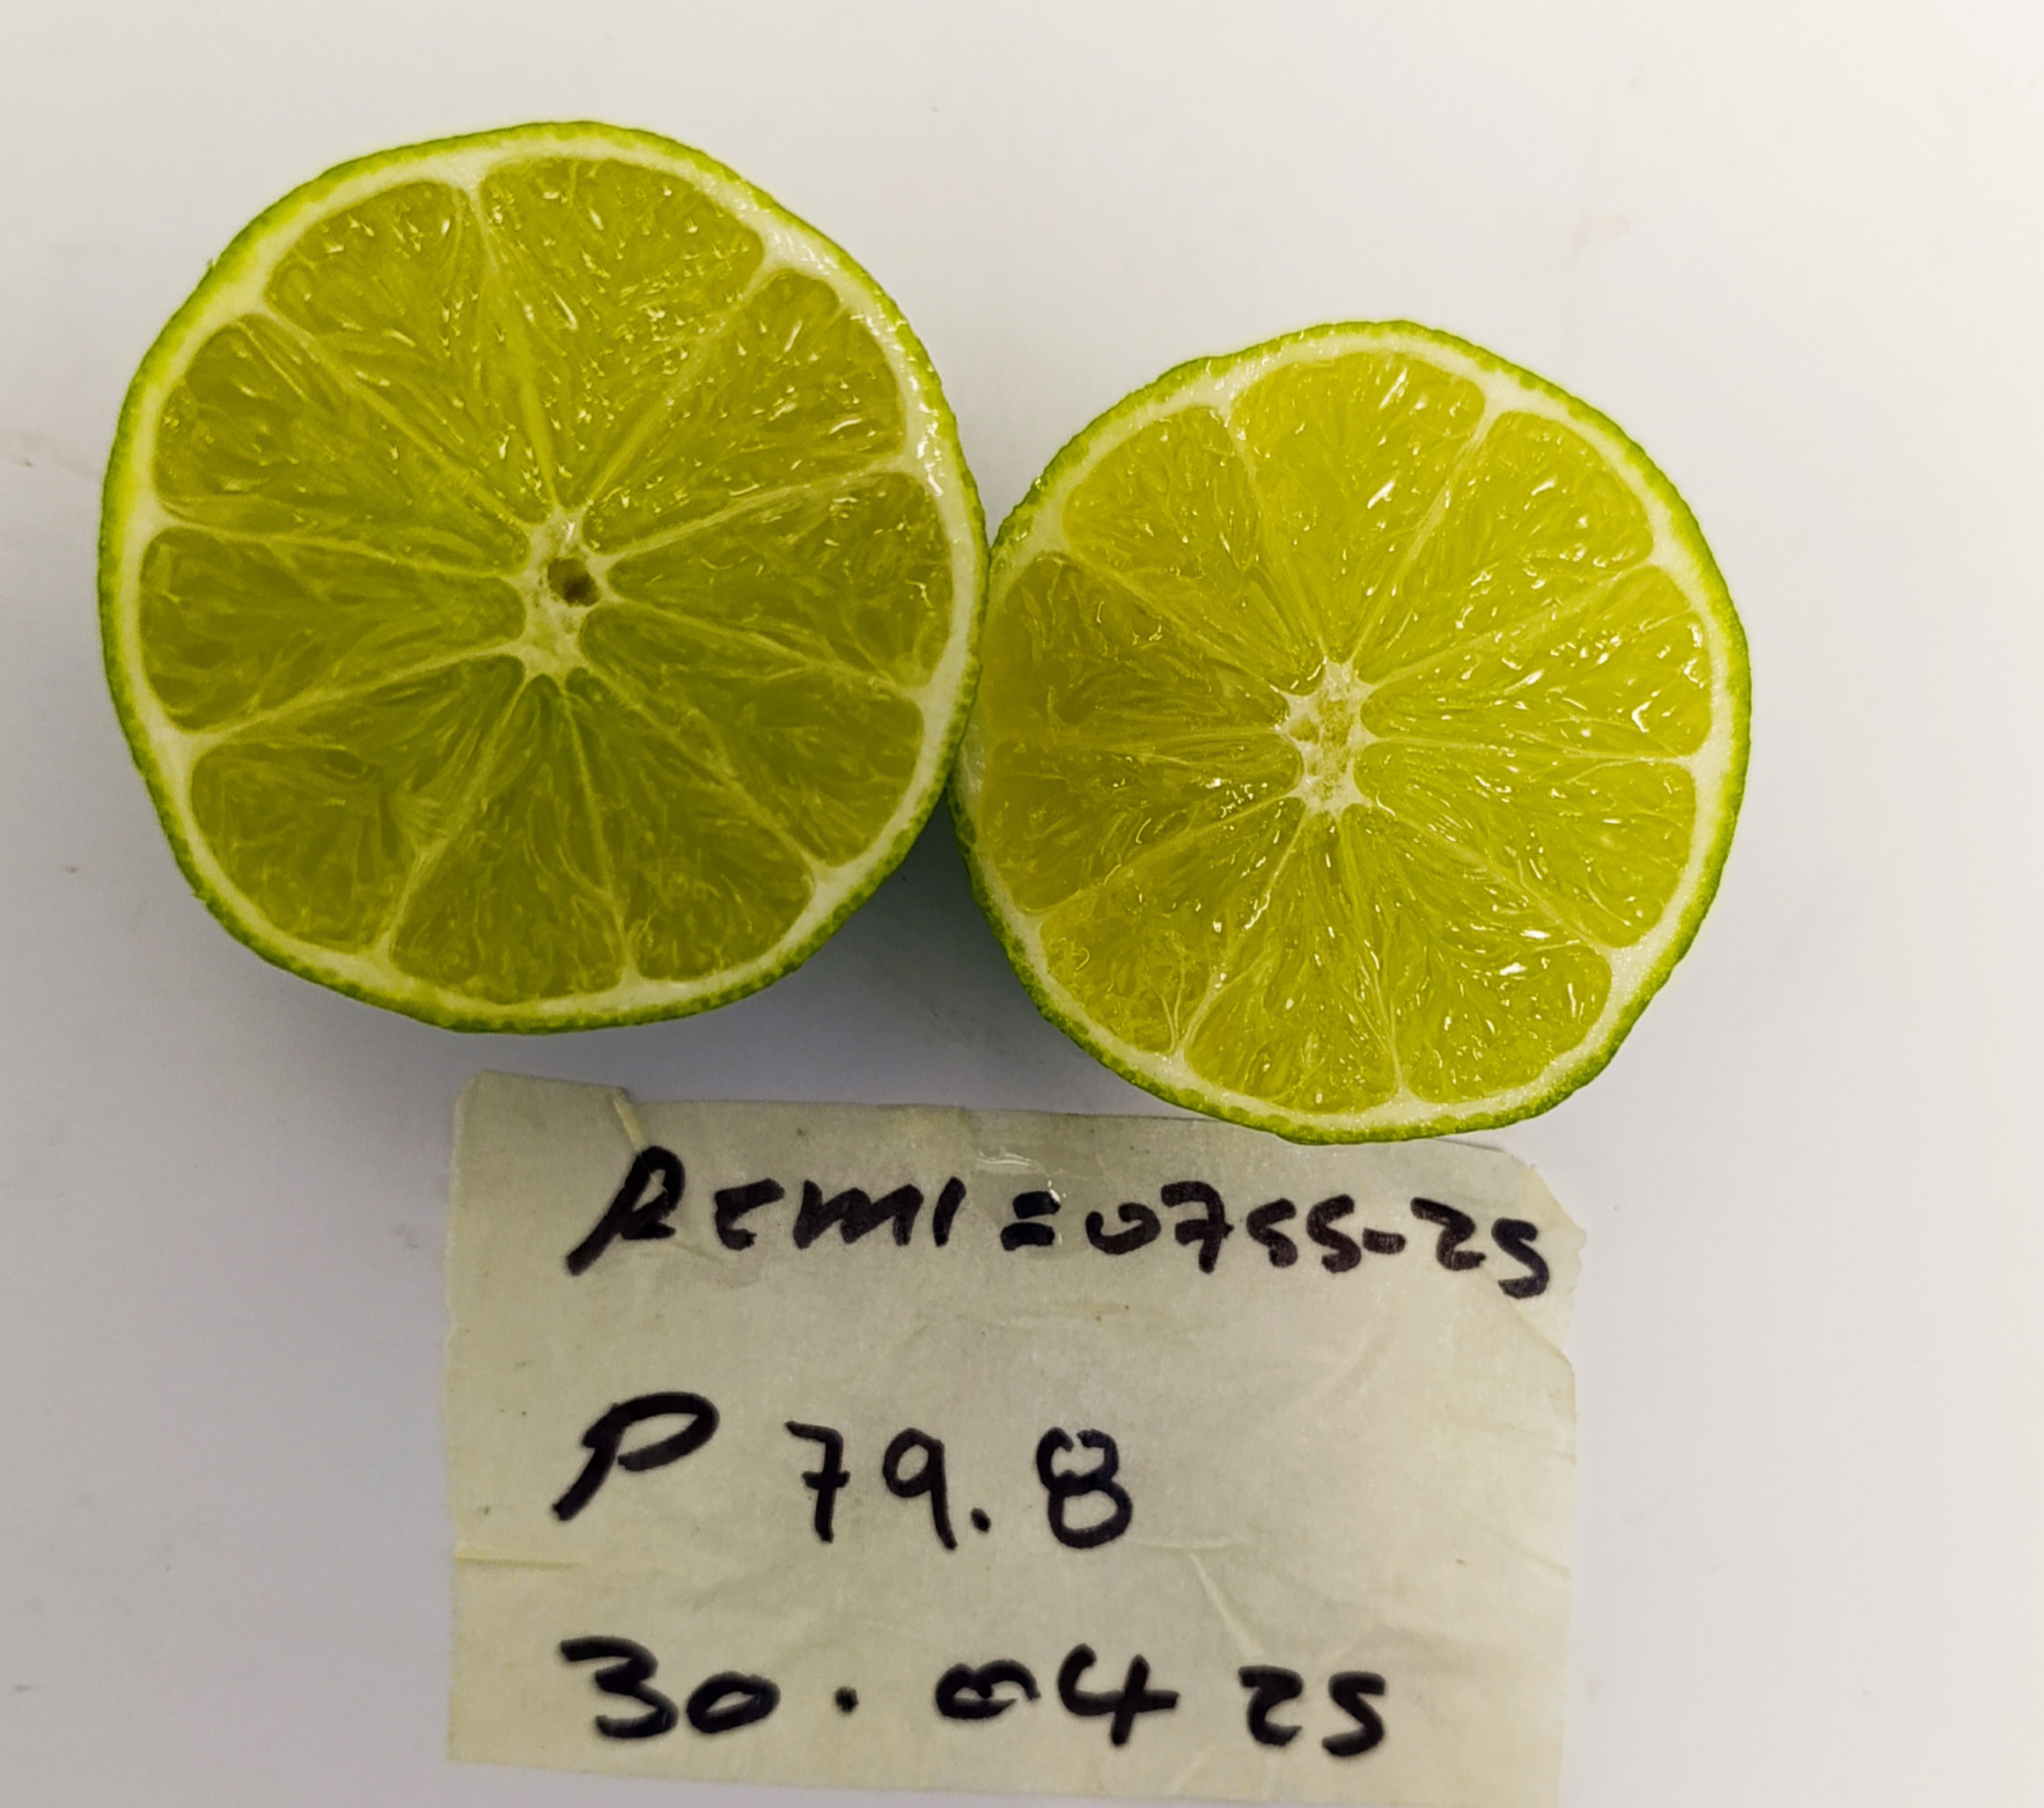 REMI=0755-25
P 79.8
30.04 25